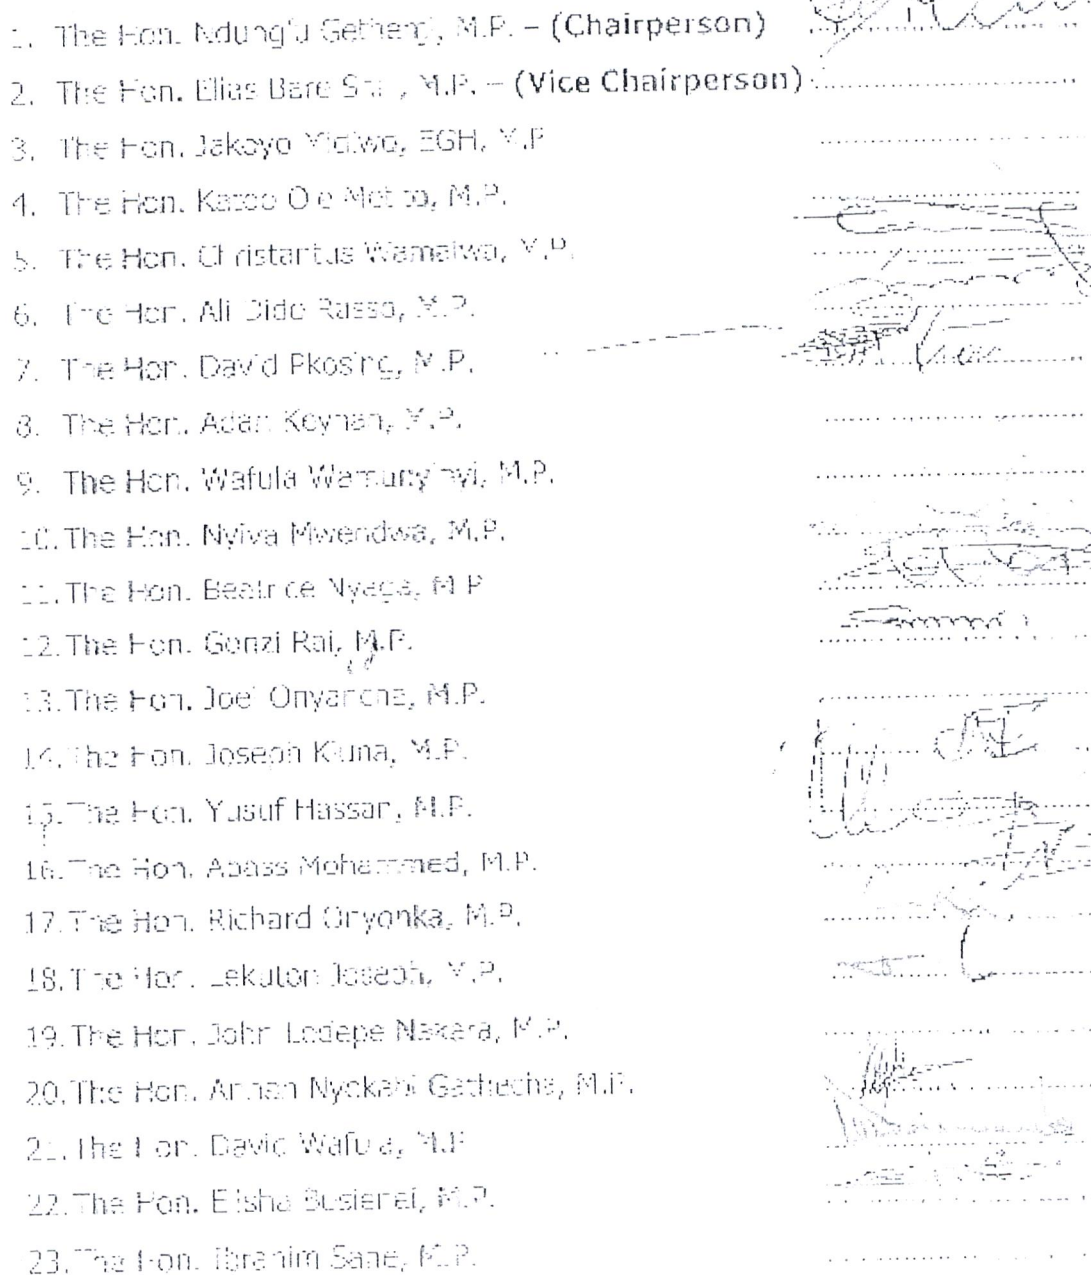 1. The Hon. Ndung'u Gethenji, M.P. – (Chairperson)
2. The Hon. Elias Bare Shill, M.P. – (Vice Chairperson)
3. The Hon. Jakoyo Midiwo, EGH, M.P
4. The Hon. Katoo Ole Metito, M.P.
5. The Hon. Christantus Wamalwa, M.P.
6. The Hon. Ali Dido Rasso, M.P.
7. The Hon. David Pkosing, M.P.
8. The Hon. Adan Keynan, M.P.
9. The Hon. Wafula Wamunyinyi, M.P.
10. The Hon. Nyiva Mwendwa, M.P.
11. The Hon. Beatrice Nyaga, M.P
12. The Hon. Gonzi Rai, M.P.
13. The Hon. Joel Onyancha, M.P.
14. The Hon. Joseph Kiuna, M.P.
15. The Hon. Yusuf Hassan, M.P.
16. The Hon. Abass Mohammed, M.P.
17. The Hon. Richard Onyonka, M.P.
18. The Hon. Lekuton Joseph, M.P.
19. The Hon. John Lodepe Nakara, M.P.
20. The Hon. Annah Nyokabi Gathecha, M.P.
21. The Hon. David Wafula, M.P
22. The Hon. Elisha Busienei, M.P.
23. The Hon. Ibrahim Sane, M.P.